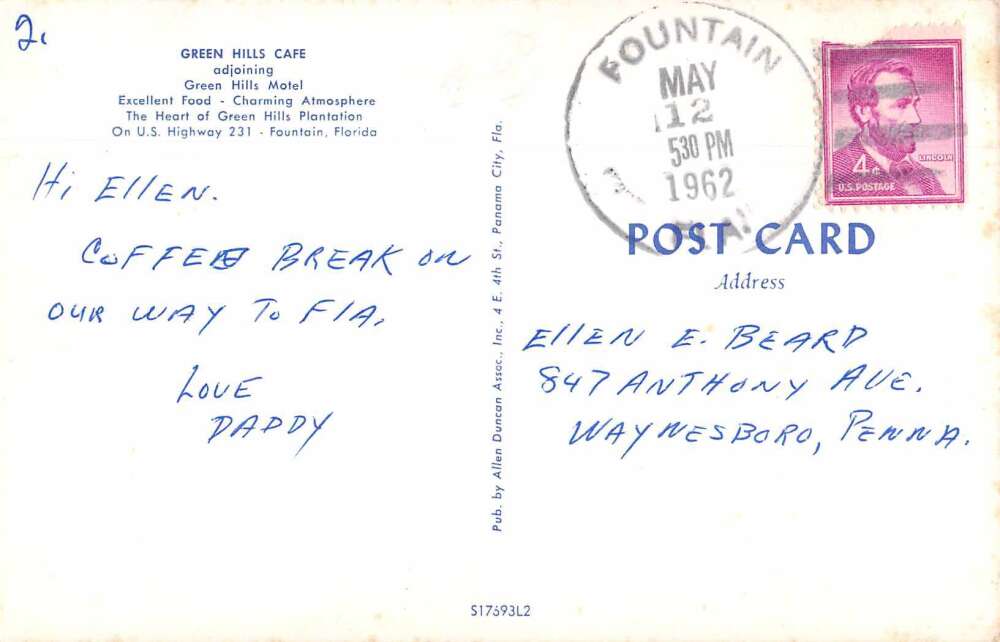 2.
GREEN HILLS CAFE
adjoining
Green Hills Motel
Excellent Food - Charming Atmosphere
The Heart of Green Hills Plantation
On U.S. Highway 231 - Fountain, Florida
Hi EllEN.
COFFEE BREAK ON
OUR WAY TO FlA.
LOVE
DADDY
Pub. by Allen Duncan Assoc., Inc., 4 E. 4th St., Panama City, Fla.
S17693L2
FOUNTAIN
MAY
12
530 PM
1962
4¢
LINCOLN
U.S. POSTAGE
POST CARD
Address
EllEN E. BEARD
847 ANTHONY AVE.
WAYNESBORO, PENNA.